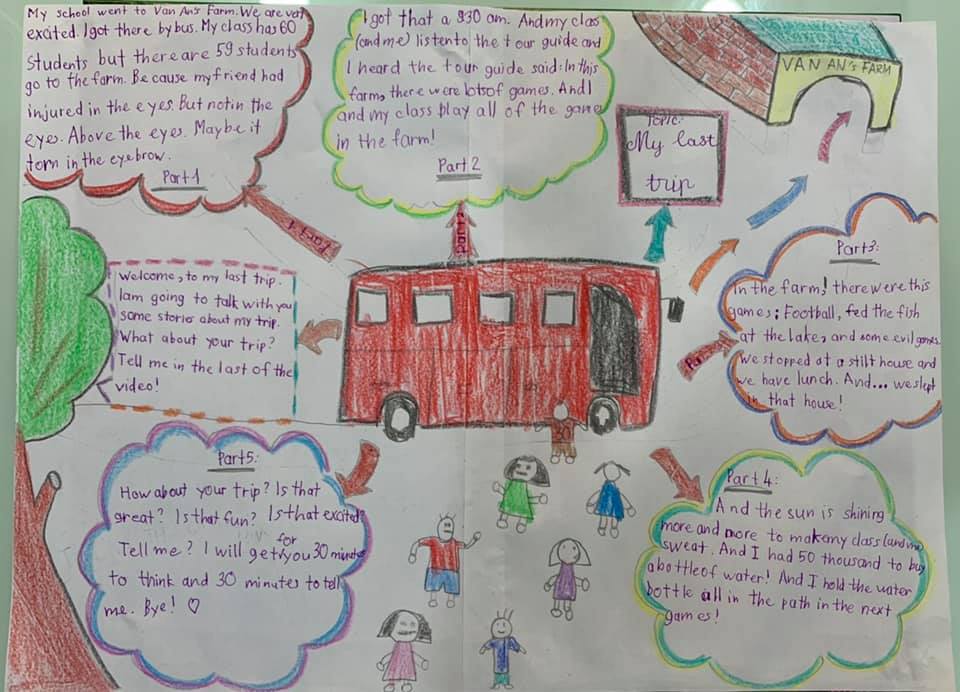 My school went to Van An's Farm. We are vet
excited. I got there by bus. My class has 60
Students but there are 59 students
go to the farm. Be cause my friend had
injured in the eyes. But notin the
eyes. Above the eyes. Maybe it
torn in the eyebrow.
Part 1
I got that a 930 am. And my class
(and me) listen to the tour guide and
I heard the tour guide said: In this
farm, there were lots of games. And I
and my class play all of the game
in the farm!
Part 2
Topic:
My last
trip
VAN AN's FARM
Part 1
Part 2
Welcome, to my last trip.
I am going to talk with you
some stories about my trip.
What about your trip?
Tell me in the last of the
video!
Part3:
In the farm, there were this
games; Football, fed the fish
at the lake, and some evil games.
we stopped at a stilt house and
we have lunch. And... we slept
in that house!
Part 4:
And the sun is shining
more and more to make my class (and me)
sweat. And I had 50 thousand to buy
a bottle of water! And I hold the water
bottle all in the path in the next
games!
Part5:
How about your trip? Is that
great? Is that fun? Is that excited?
Tell me? I will get for you 30 minutes
to think and 30 minutes to tell
me. Bye! ♡